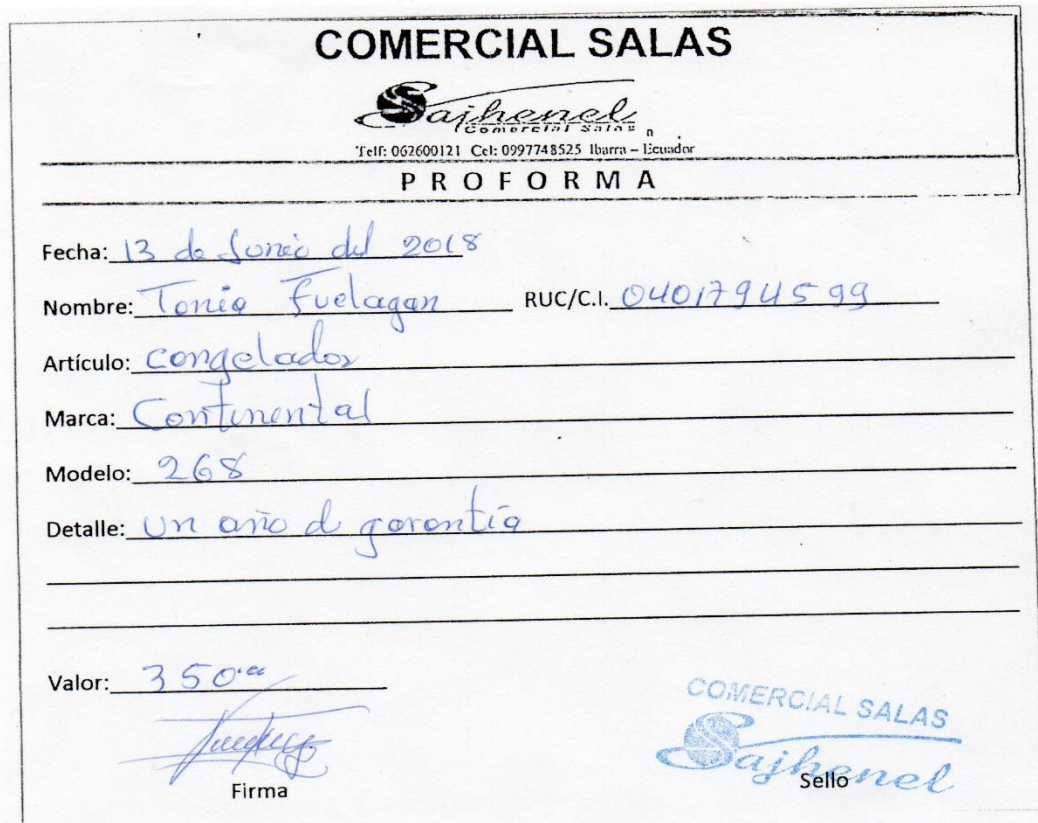 COMERCIAL SALAS
Sajhenel
Comercial Salas
Telf: 062600121 Cel: 0997748525 Ibarra – Ecuador
PROFORMA
Fecha: 13 de Junio del 2018
Nombre: Tonia Fuelagan RUC/C.I. 0401794599
Artículo: congelador
Marca: Continental
Modelo: 268
Detalle: un año d garantía
Valor: 350.00
Firma
COMERCIAL SALAS
Sajhenel
Sello